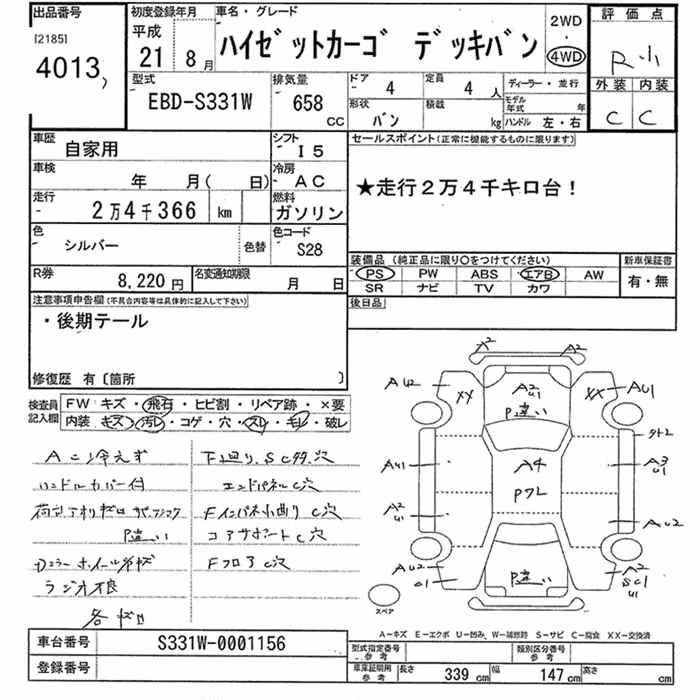 出品番号
[2185]
4013
初度登録年月
平成
21年 8月
車名・グレード
ハイゼットカーゴ デッキバン
2WD
・
4WD
評価点
R小
外装 内装
C C
型式
EBD-S331W
排気量
658 CC
ドア
4
定員
4人
ディーラー・並行
形状
バン
積載
kg
モデル年式 年
ハンドル 左・右
車歴
自家用
シフト
I5
車検
年 月( 日)
冷房
AC
走行
2万4千366 km
燃料
ガソリン
色
シルバー
色替
色コード
S28
R券
8,220円
名変通知期限
月 日
セールスポイント(正常に機能するものに限ります)
★走行2万4千キロ台!
装備品(純正品に限り○をつけてください)
PS PW ABS エアB AW
SR ナビ TV カワ
新車保証書
有・無
後日品
注意事項申告欄(不具合内容等は具体的に記入して下さい)
・後期テール
修復歴 有〔箇所 〕
検査員記入欄
FW キズ・飛石・ヒビ割・リペア跡・×要
内装 キズ・汚レ・コゲ・穴・スレ・キレ・破レ
ハンドルカバー付
エンドパネルC穴
P違い
コアサポートC穴
FフロアC穴
ラジオ不良
A2 A2
AU2 XX XX AU1
A2
U1
P違い
AU1 A4 A3
U1
P7L
A2
U1
AU2
AU2
C1
P違い
A2
SC1
U1
スペア
A-キズ E-エクボ U-凹み W-補修跡 S-サビ C-腐食 XX-交換済
車台番号
S331W-0001156
登録番号
型式指定番号
参考
類別区分番号
参考
車庫証明用
参考
長さ 339cm 幅 147cm 高さ cm